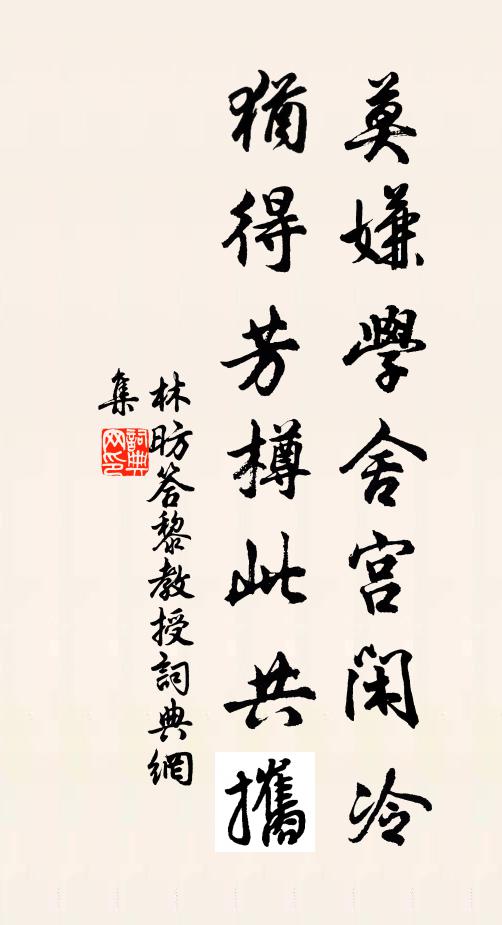 莫嫌學舍宮閑冷
猶得芳樽此共攜
林昉答黎教授詞典網
集
詞典網印